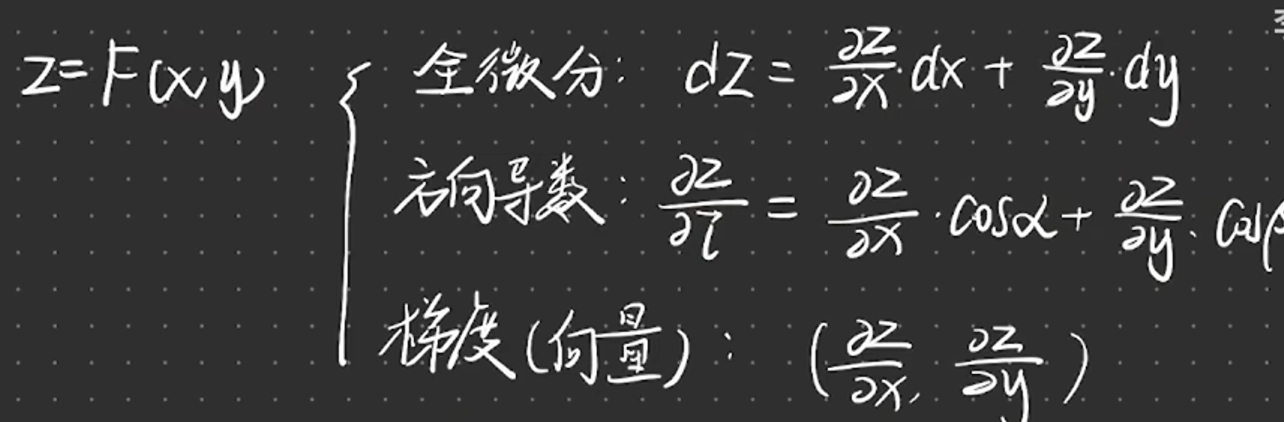 z=F(x,y) { 全微分: dz = ∂z/∂x·dx + ∂z/∂y·dy
方向导数: ∂z/∂l = ∂z/∂x·cosα + ∂z/∂y·cosβ
梯度(向量): (∂z/∂x, ∂z/∂y)